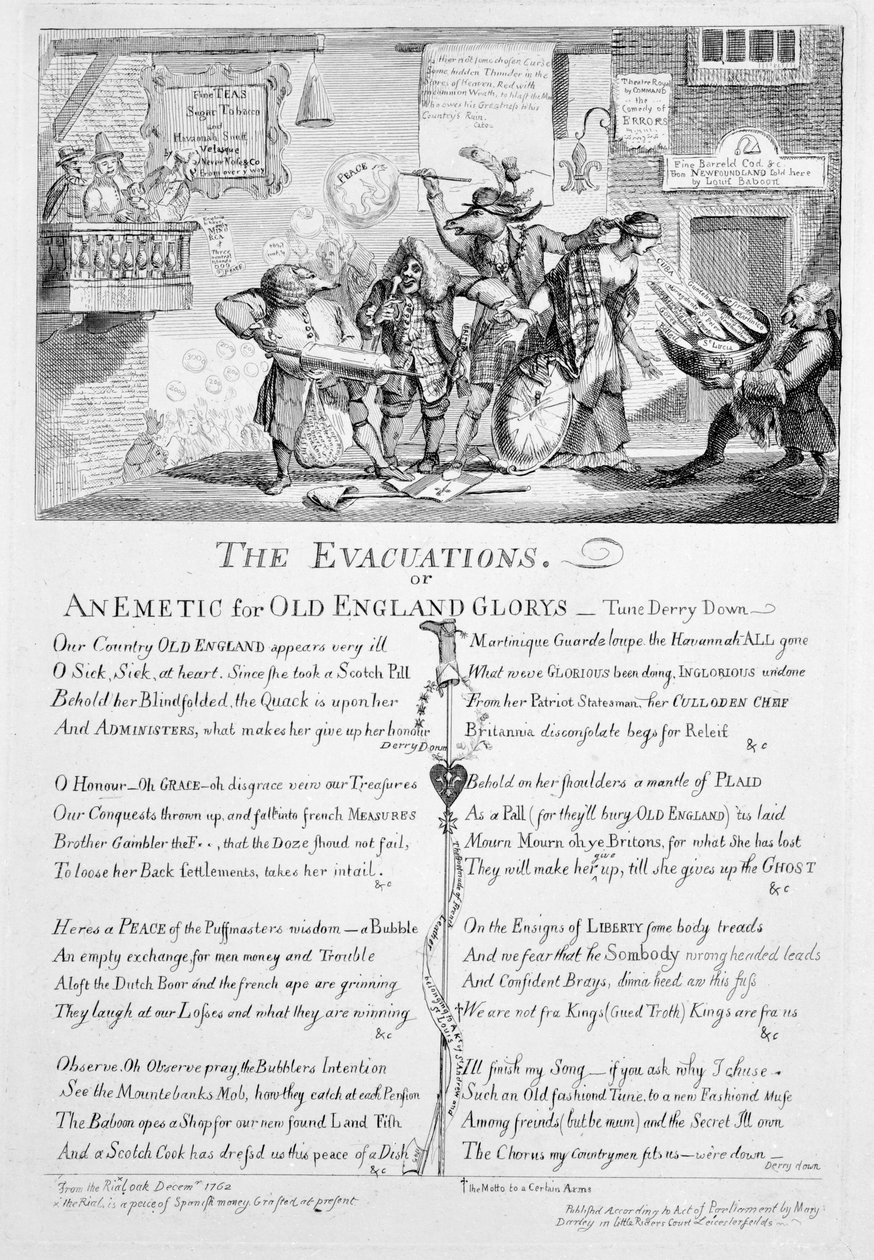 Fine TEAS
Sugar Tobacco
and
Havannah Snuff
by Velasque
Nerver Nose & Co
from over y way
PEACE
Is ther not some chosen Curse
Some hidden Thunder in the
Stores of Heaven, Red with
uncommon Wrath, to blast the Man
Who owes his Greatness to his
Countrys Ruin.
Cato
Theatre Royal
by COMMAND
the
Comedy of
ERRORS
Fine Barreld Cod. & c.
from NEWFOUNDLAND sold here
by Louis Baboon
CUBA
St LUCIA
THE EVACUATIONS.
or
AN EMETIC for OLD ENGLAND GLORYS — Tune Derry Down
Our Country OLD ENGLAND appears very ill
O Sick, Sick, at heart. Since she took a Scotch Pill
Behold her Blindfolded, the Quack is upon her
And ADMINISTERS, what makes her give up her honour
Derry Down
O Honour — Oh GRACE — oh disgrace veiw our Treasures
Our Conquests thrown up, and fall'n into french MEASURES
Brother Gambler the F . . , that the DOZE shoud not fail,
To loose her Back settlements, takes her in tail.
& c
Heres a PEACE of the Puffmasters wisdom — a Bubble
An empty exchange, for men money and Trouble
Aloft the Dutch Boor and the french ape are grinning
They laugh at our Losses and what they are winning
& c
Observe, Oh Observe pray, the Bubblers Intention
See the Mountebanks Mob, how they catch at each Pension
The Baboon opes a Shop for our new found Land Fish
And a Scotch Cook has dress'd us this peace of a Dish
& c
Martinique Guardeloupe. the Havannah ALL gone
What weve GLORIOUS been doing, INGLORIOUS undone
From her Patriot Statesman, her CULLODEN CHEIF
Britannia disconsolate begs for Releif
& c
Behold on her shoulders a mantle of PLAID
As a Pall (for they'll bury OLD ENGLAND) 'tis laid
Mourn Mourn oh ye Britons, for what She has lost
They will make her give up, till she gives up the GHOST
& c
On the Ensigns of LIBERTY some body treads
And we fear that he Sombody wrong headed leads
And Confident Brays, dinna heed aw this fuss
† We are not fra Kings (Gued Troth) Kings are fra us
& c
Ill finish my Song — if you ask why I chuse
Such an Old fashiond Tune, to a new Fashiond Muse
Among freinds (but be mum) and the Secret Ill own
The Chorus my Countrymen fits us — we're down —
Derry down
From the Rial x oak Decemr. 1762
x the Rial, is a peice of Spanish money. Grafted at present
† the Motto to a Certain Arms
Publishd According to Act of Parliament by Mary
Darley in Little Riders Court Leicesterfeilds